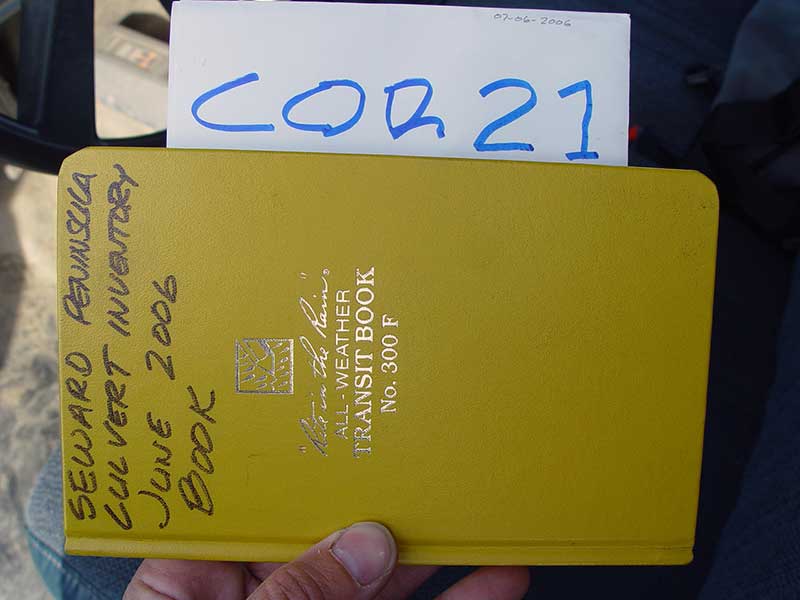 07-06-2006
COR 21
SEWARD PENINSULA
CULVERT INVENTORY
JUNE 2006
BOOK
"Rite in the Rain"®
ALL-WEATHER
TRANSIT BOOK
No. 300 F